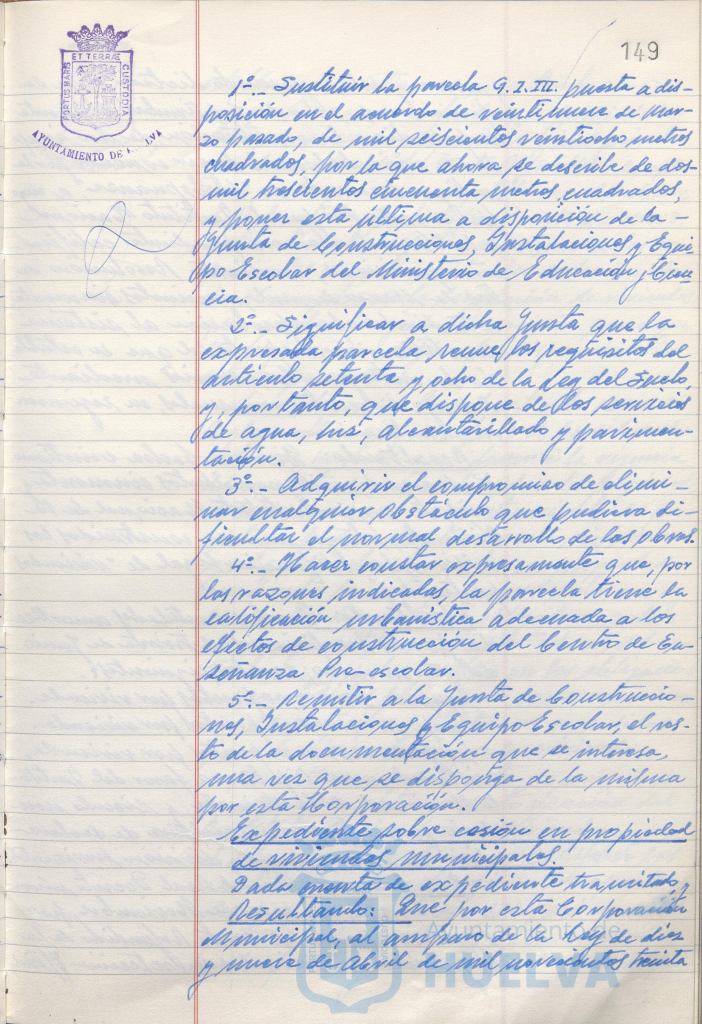 149
PORTUS MARIS ET TERRÆ CUSTODIA
AYUNTAMIENTO DE HUELVA
1º.- Sustituir la parcela G.I.III. puesta a dis-
posición en el acuerdo de veintinueve de mar-
zo pasado, de mil seiscientos veintiocho metros
cuadrados, por la que ahora se describe de dos
mil trescientos cincuenta metros cuadrados,
y poner esta última a disposición de la -
Junta de Construcciones, Instalaciones y Equi-
po Escolar del Ministerio de Educación y Cien-
cia.
2º.- Significar a dicha Junta que la
expresada parcela reune los requisitos del
artículo setenta y ocho de la Ley del Suelo,
y, por tanto, que dispone de los servicios
de agua, luz, alcantarillado y pavimen-
tación.
3º.- Adquirir el compromiso de elimi-
nar cualquier obstáculo que pudiera di-
ficultar el normal desarrollo de las obras.
4º.- Hacer constar expresamente que, por
las razones indicadas, la parcela tiene la
calificación urbanística adecuada a los
efectos de construcción del Centro de En-
señanza Pre-escolar.
5º.- Remitir a la Junta de Construccio-
nes, Instalaciones y Equipo Escolar, el res-
to de la documentación que se interesa,
una vez que se disponga de la misma
por esta Corporación.
Expediente sobre cesión en propiedad
de viviendas municipales.
Dada cuenta de expediente tramitado, y
Resultando: Que por esta Corporación
Municipal, al amparo de la Ley de diez
y nueve de Abril de mil novecientos treinta
Ayuntamiento de
HUELVA